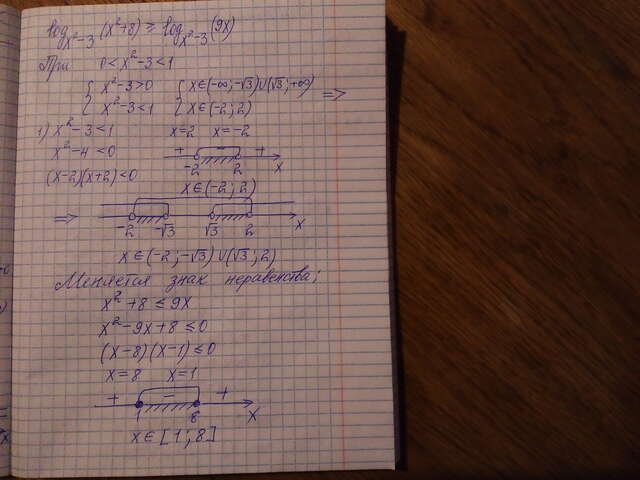 log x²-3 (x²+8) ≥ log x²-3 (9x)
При 0 < x²-3 < 1
{ x²-3>0 { x∈(-∞;-√3)∪(√3;+∞)
{ x²-3<1 { x∈(-2;2) =>
1) x²-3<1 x=2 x=-2
x²-4<0 + - +
-2 2 x
(x-2)(x+2)<0
x∈(-2;2)
=>
-2 -√3 √3 2 x
x∈(-2;-√3)∪(√3;2)
Меняется знак неравенства;
x²+8≤9x
x²-9x+8≤0
(x-8)(x-1)≤0
x=8 x=1
+ - +
1 8 x
x∈[1;8]